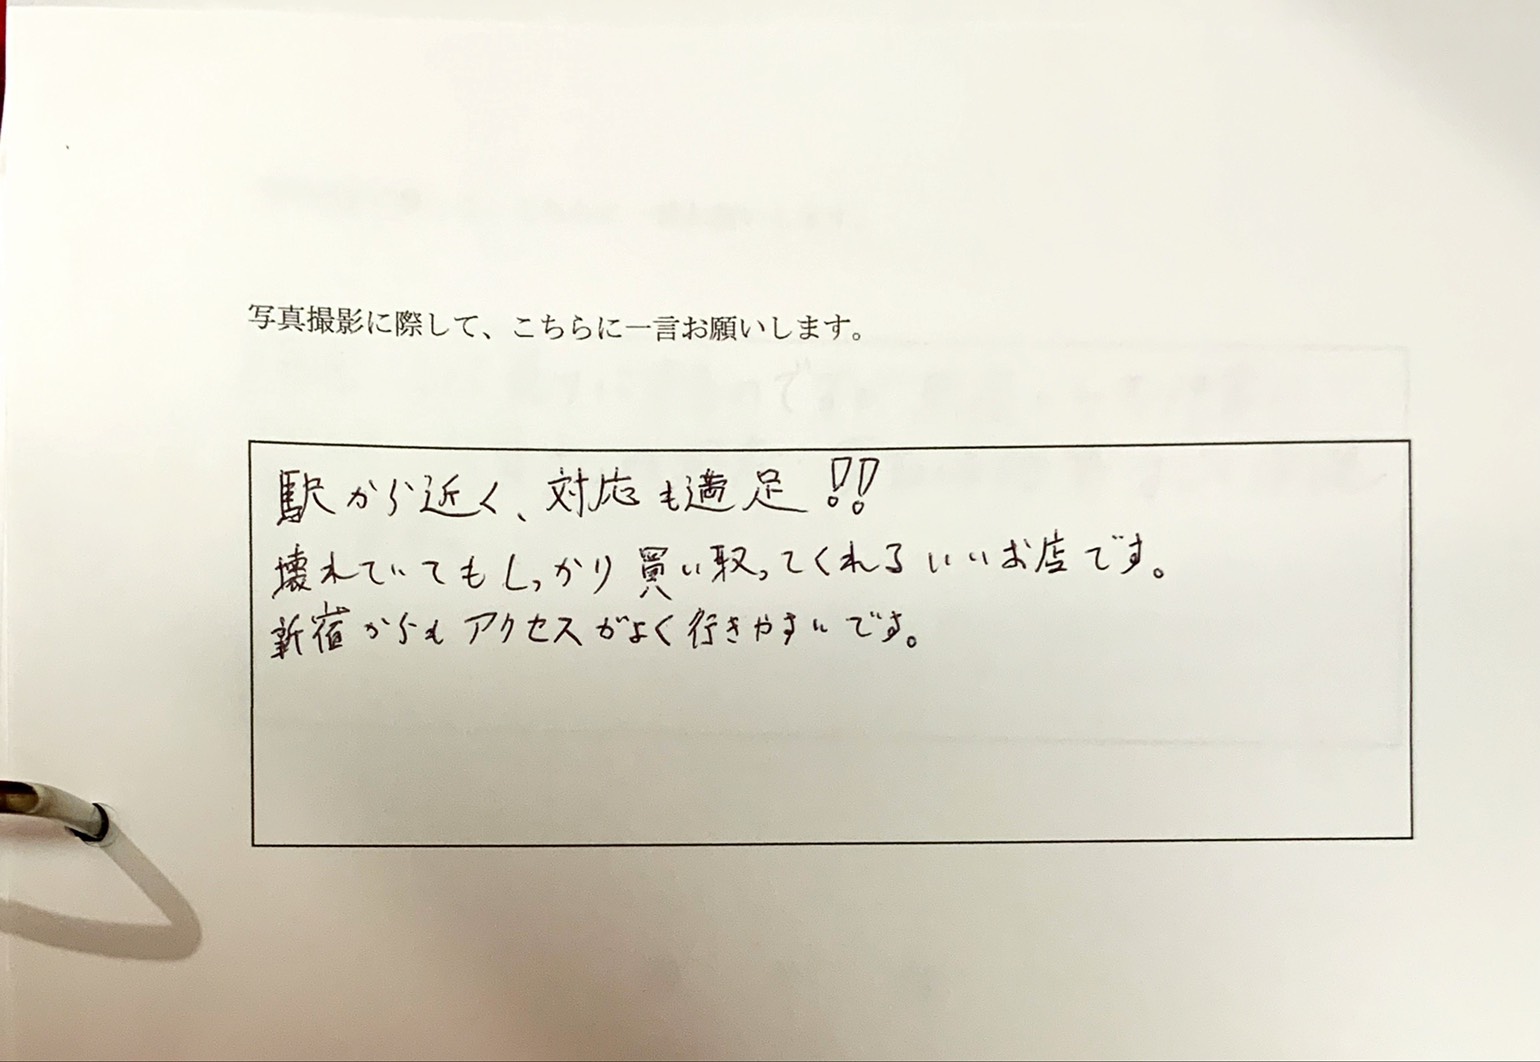 写真撮影に際して、こちらに一言お願いします。
駅から近く、対応も満足!!
壊れていてもしっかり買い取ってくれるいいお店です。
新宿からもアクセスがよく行きやすいです。